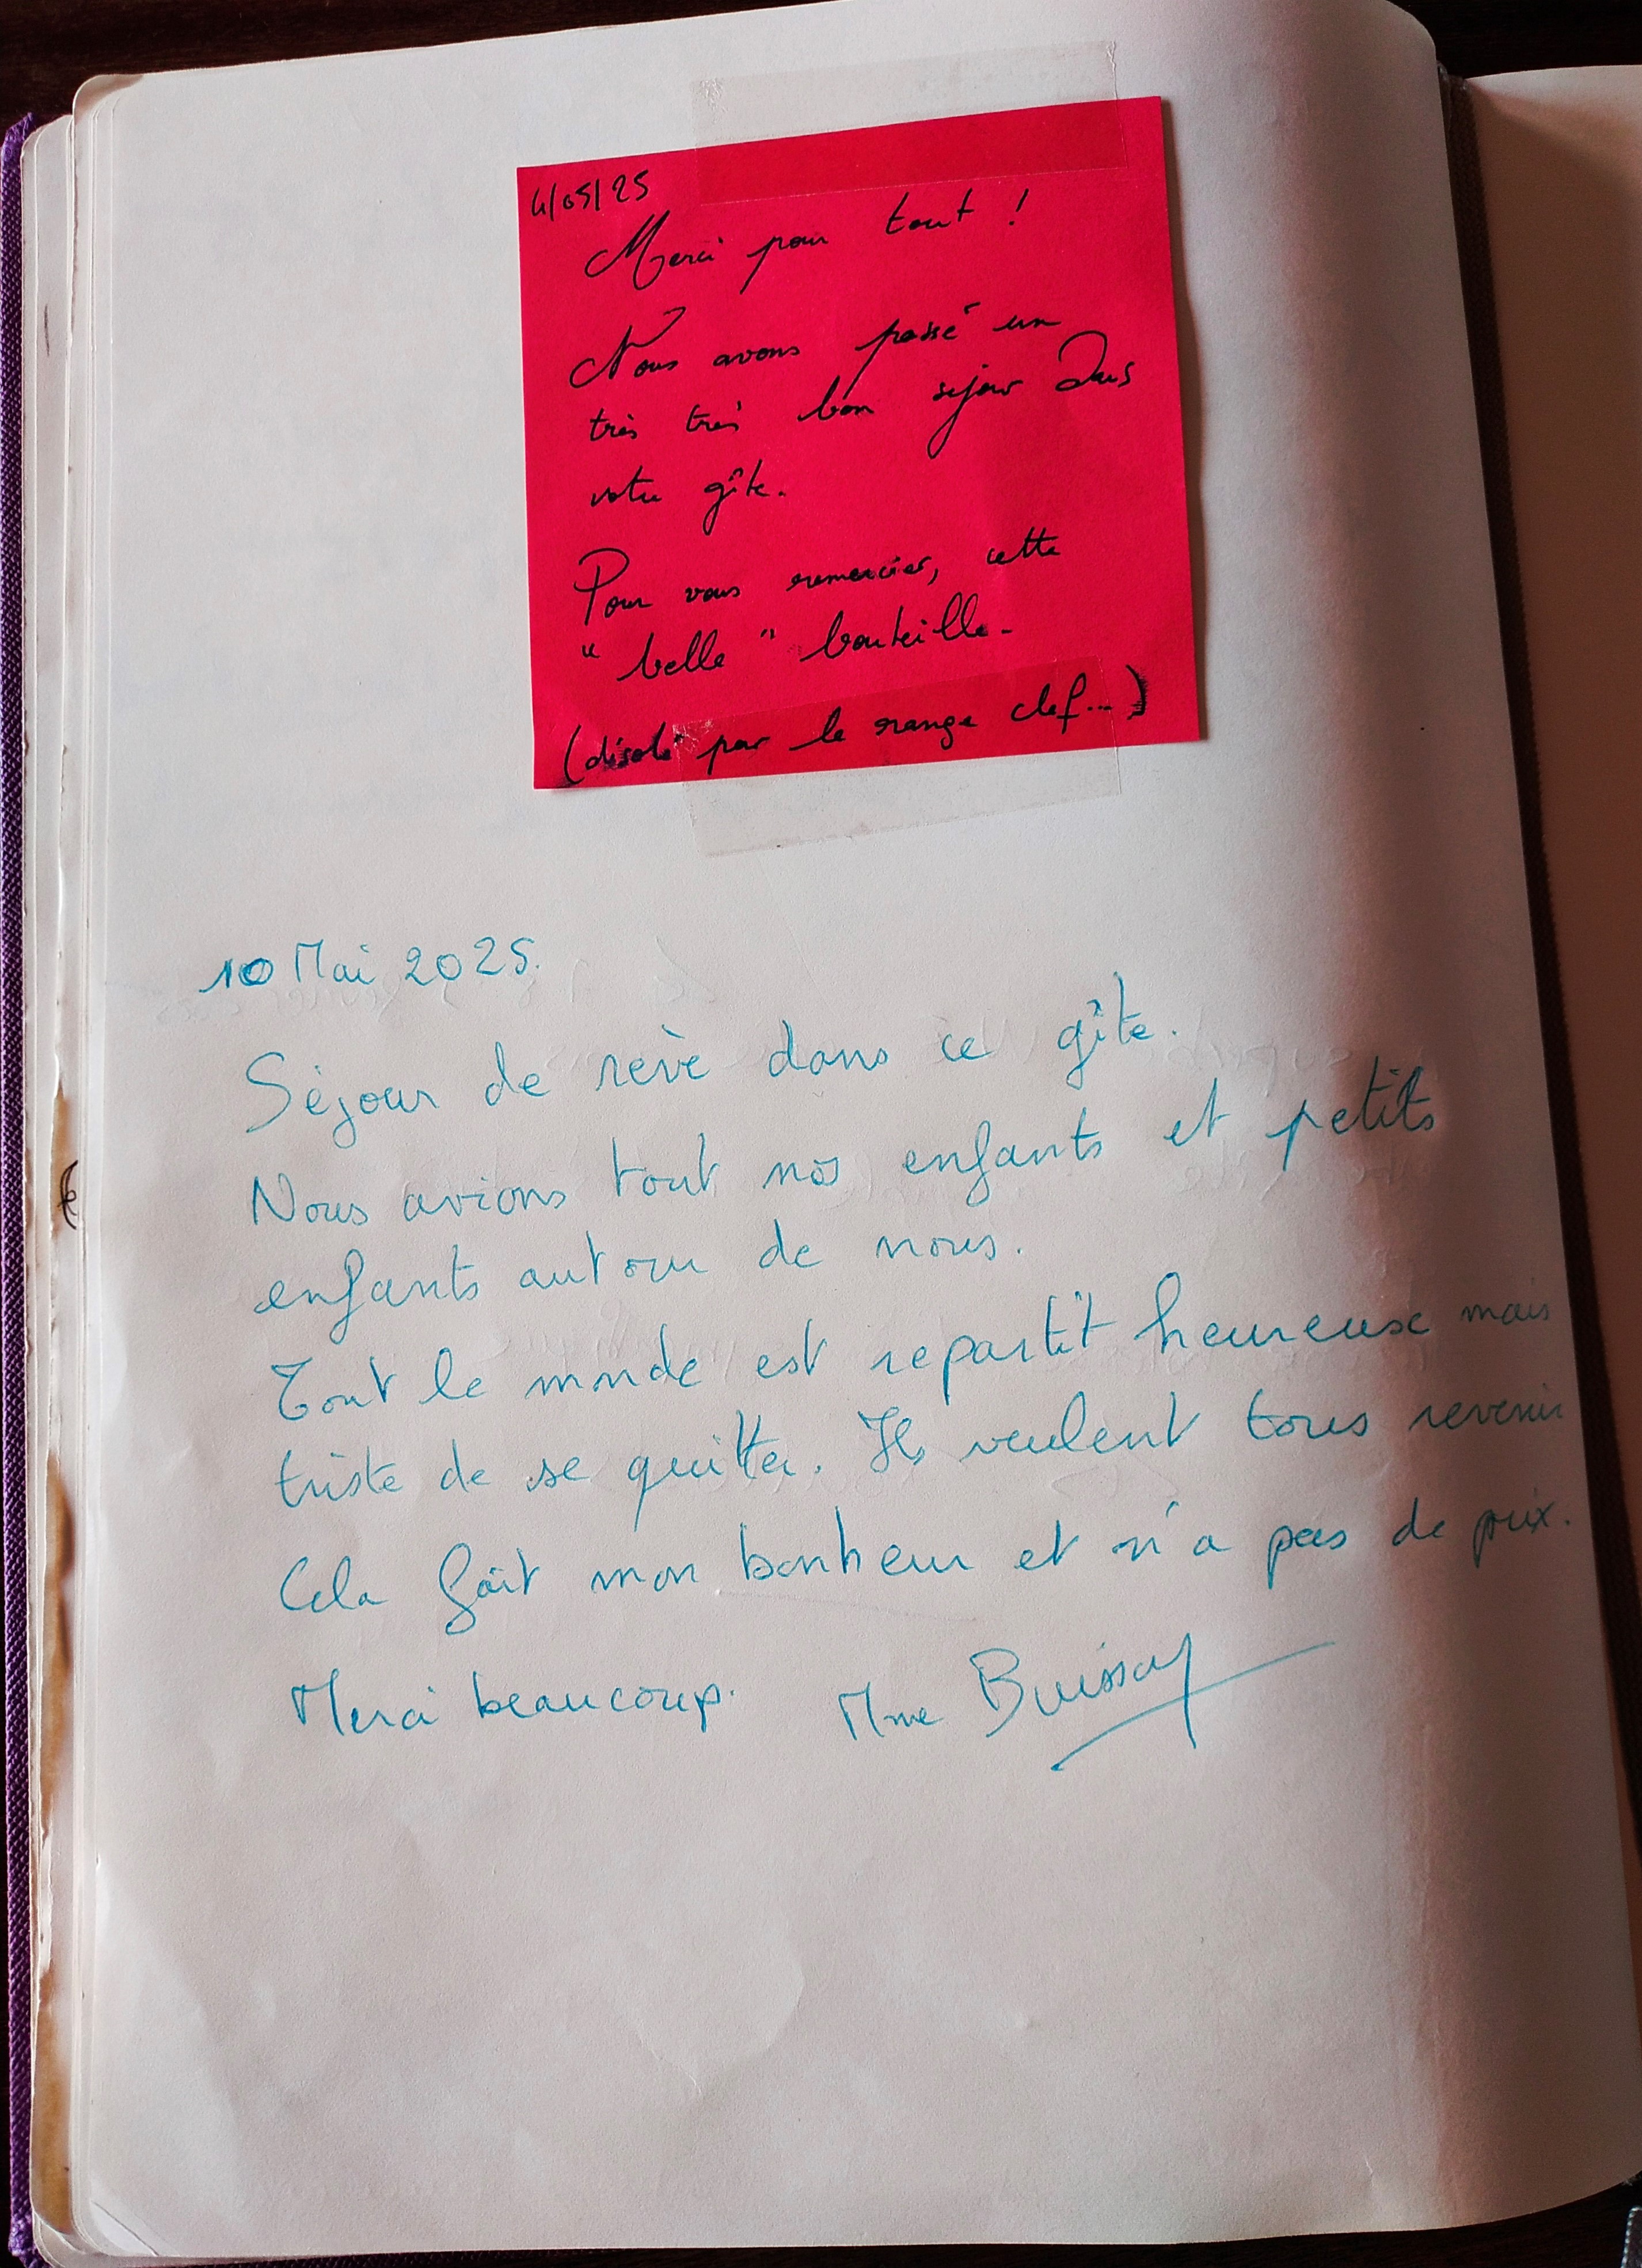 4/05/25
Merci pour tout !
Nous avons passé un
très très bon séjour Dans
votre gîte.
Pour vous remercier, cette
"belle" bouteille.
(désolé par le range clef...)
10 Mai 2025.
Séjour de rêve dans ce gîte.
Nous avions tout nos enfants et petits
enfants autour de nous.
Tout le monde est repartit heureuse mais
triste de se quitter. Ils veulent tous revenir
Cela fait mon bonheur et n'a pas de prix.
Merci beaucoup. Mme